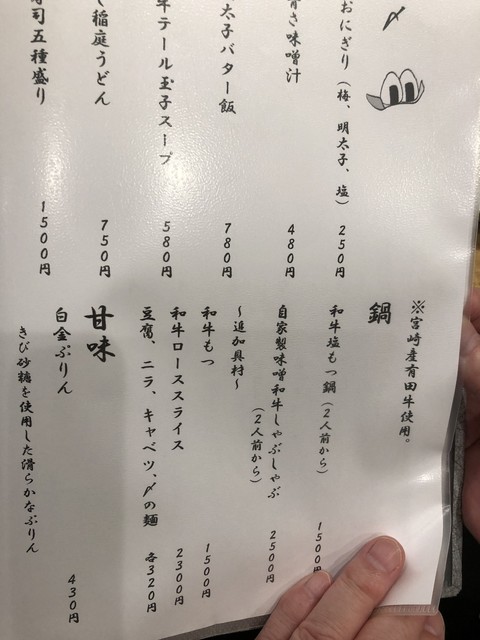 〆
おにぎり（梅、明太子、塩） 250円
味噌汁 480円
太子バター飯 780円
テール玉子スープ 580円
稲庭うどん 750円
司五種盛り 1500円
※宮崎産有田牛使用。
鍋
和牛塩もつ鍋（2人前から） 1500
自家製味噌和牛しゃぶしゃぶ（2人前から） 2500円
～追加具材～
和牛もつ 1500円
和牛ローススライス 2300円
豆腐、ニラ、キャベツ、〆の麺 各320円
甘味
白金ぷりん 430円
きび砂糖を使用した滑らかなぷりん